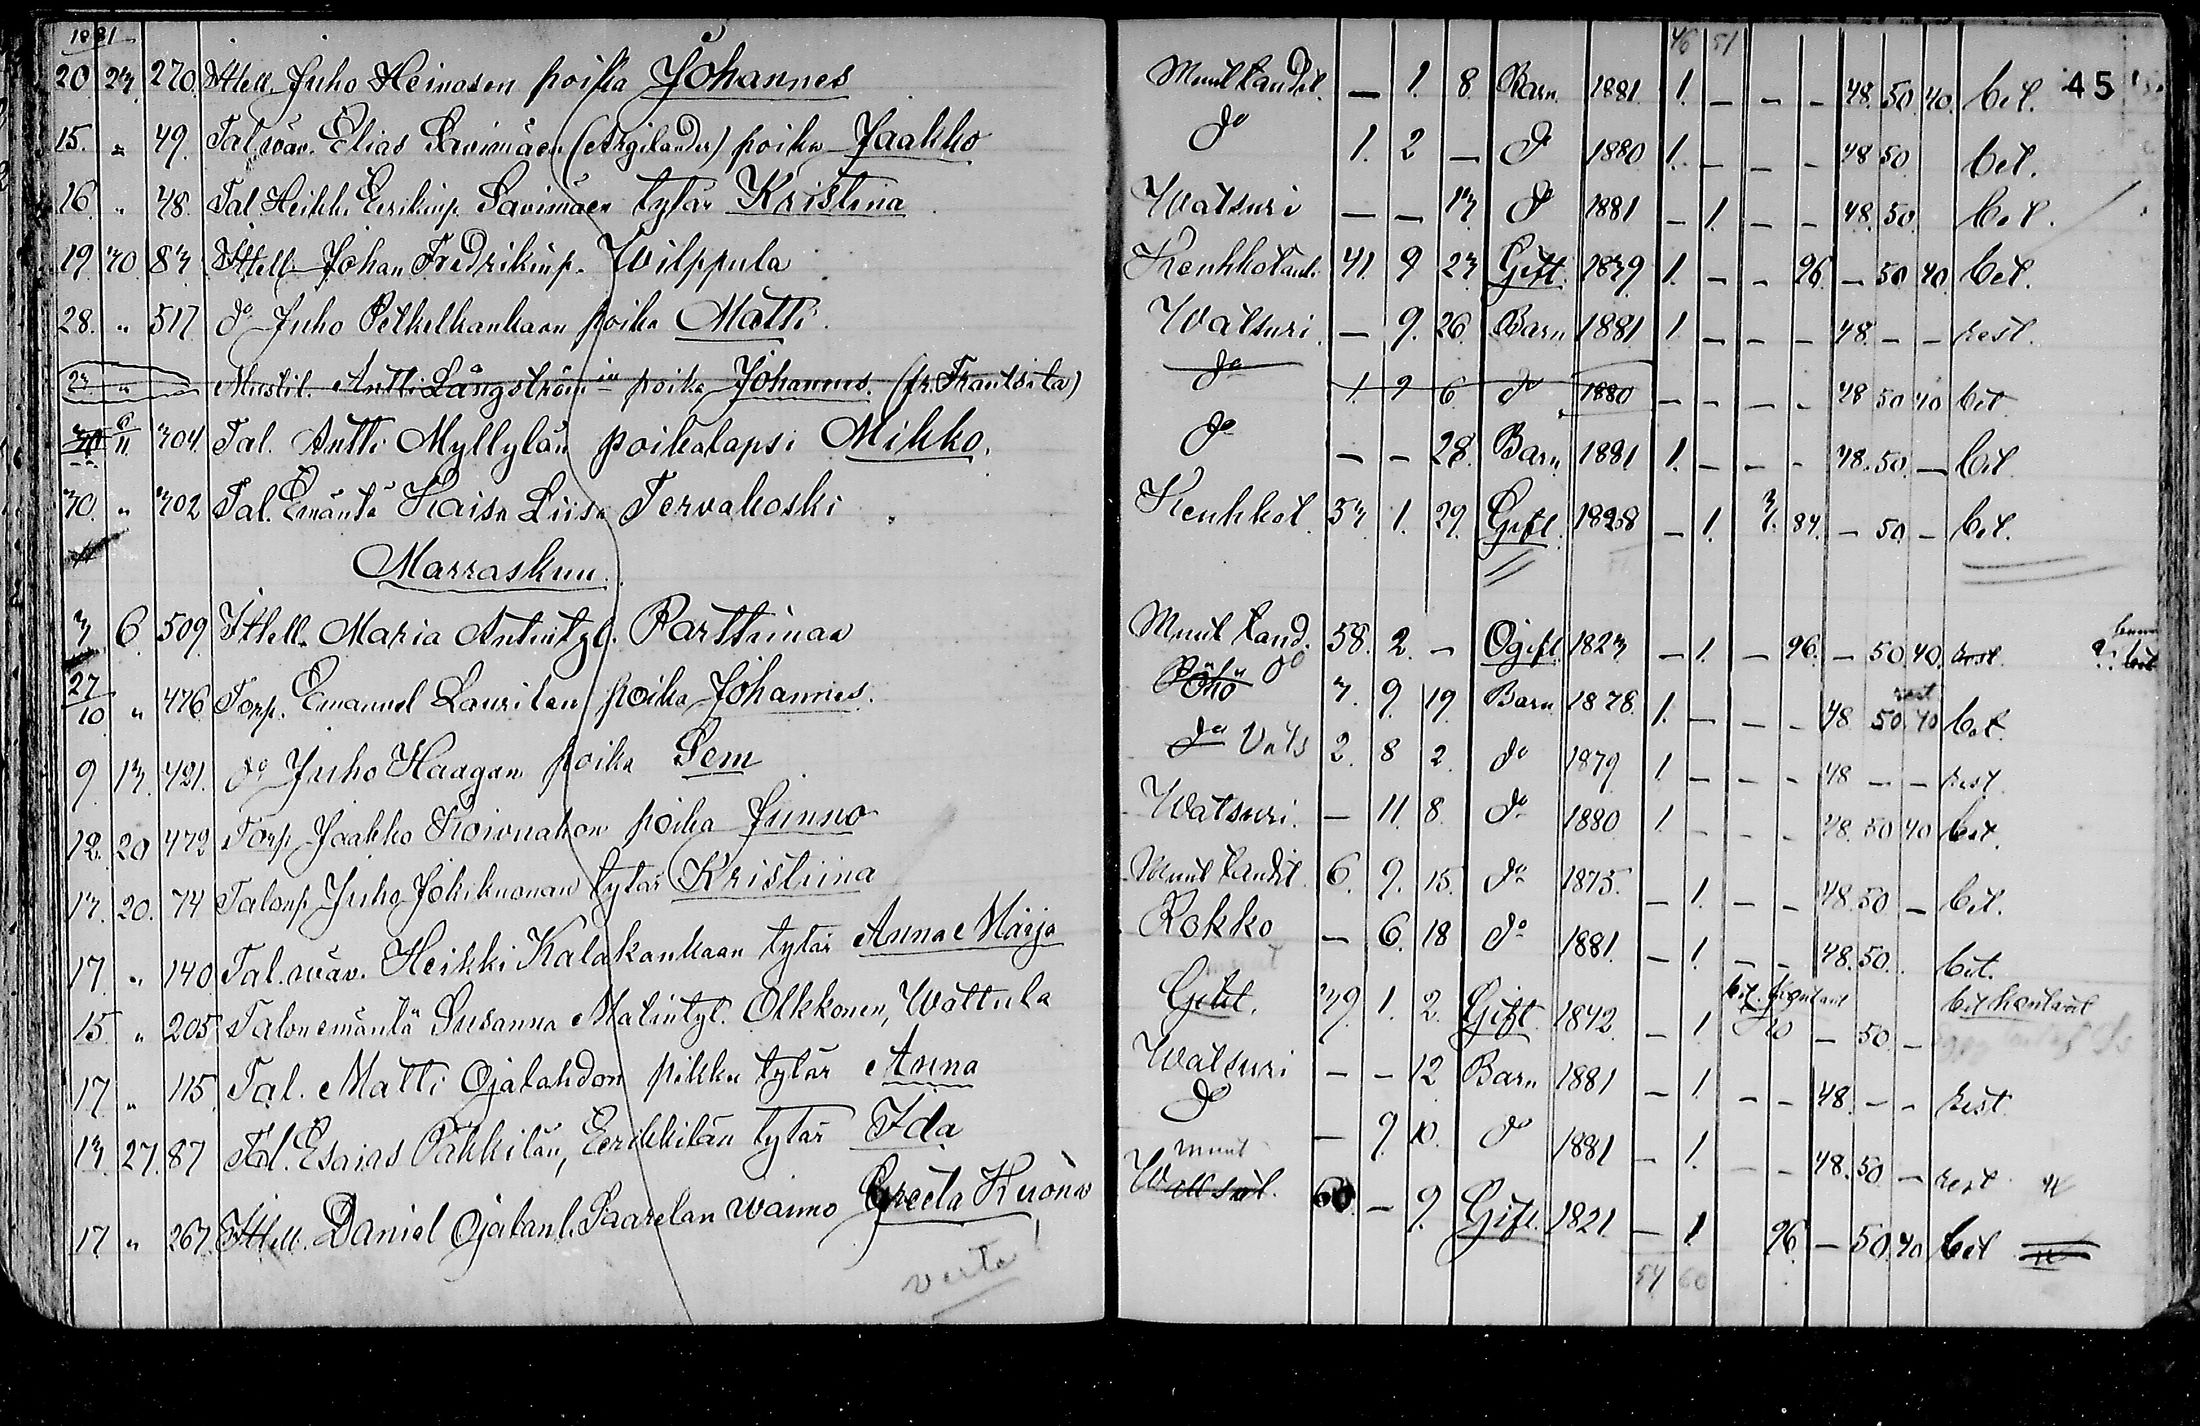 1881 46 51
20. 23. 270. Ittell. Juho Heinosen poika Johannes Muut taudit. — 1. 8. Barn 1881. 1. — — — 48. 50. 40. bet. 45
15. „ 49. Tal. wäv. Elias Savimäen (Argilander) poika Jaakko do 1. 2 — do 1880 1. — — — 48 50 bet.
16. „ 48. Tal Heikki Eerikinp. Savimäen tytär Kristina Watsuri — — 13 do 1881 — 1. — — 48. 50. bet.
19. 30. 83. Ittell. Johan Fredrikinp. Wilppula Keuhkotaut. 41. 9 23. Gift. 1839 1. — — 96. — 50 40. bet.
28. „ 517 do Juho Petkelkankaan poika Matti. Watsuri. — 9. 26. Barn 1881 1. — — — 48. — — rest.
23. „ Mustil. Antti Långströmin poika Johannes. (fr. Frantsila) do 1. 9 6. do 1880 — — — — 48 50 40 bet
30 6/11 304. Tal. Antti Myllylän poikalapsi Mikko. do — — 28. Barn 1881 1. — — — 48. 50. — bet.
30. „ 302 Tal. Emäntä Kaisa Liisa Tervakoski Keuhkot. 53. 1. 29. Gift. 1828 — 1. 3/7. 84. — 50. — bet.
Marraskuu.
3 6. 509. Ittell. Maria Antintyt. Parttinan Muut taud. 58. 2. — Ogift. 1823 — 1. — 96. — 50. 40. rest.
27/10 „ 476 Torp. Emanuel Laurilan poika Johannes. do 3. 9. 19. Barn. 1878. 1. — — — 48 50. 40 rest bet
9. 13. 421. do Juho Haagan poika Sem do Vats 2. 8 2. do 1879 1 — — — 48 — — rest.
12. 20 472 Torp Jaakko Koivuahon poika Junno Watsuri. — 11. 8. do 1880 1. — — — 48. 50 40 bet.
13. 20. 74 Talonp. Juho Jokikuonan tytär Kristiina Muut taudit. 6. 9. 15. do 1875. — 1. — — 48. 50 — bet.
17. „ 140 Tal. wäv. Heikki Kalakankaan tytär Anna Maija Rokko — 6. 18 do 1881. — 1. — — 48. 50. bet.
15 „ 205 Talon emäntä Susanna Matintyt. Olkkonen, Wottula 39. 1. 2. Gift. 1842. — 1 — 50. — bet kontant
17 „ 115. Tal. Matti Ojalahdon pikku tytär Anna Watsuri — — 12 Barn 1881 — 1 — — 48. — — rest
13. 27. 87 Tal. Esaias Pakkilan, Eerikkilän tytär Ida do — 9. 10. do 1881 — 1. — — 48. 50 — rest
17 „ 267. Ittell. Daniel Ojalanl. Saarelan waimo Greeta Kuona muut Watsut. 60. — 9. Gift. 1821 — 1 96. — 50. 40 bet
verte! 54 60